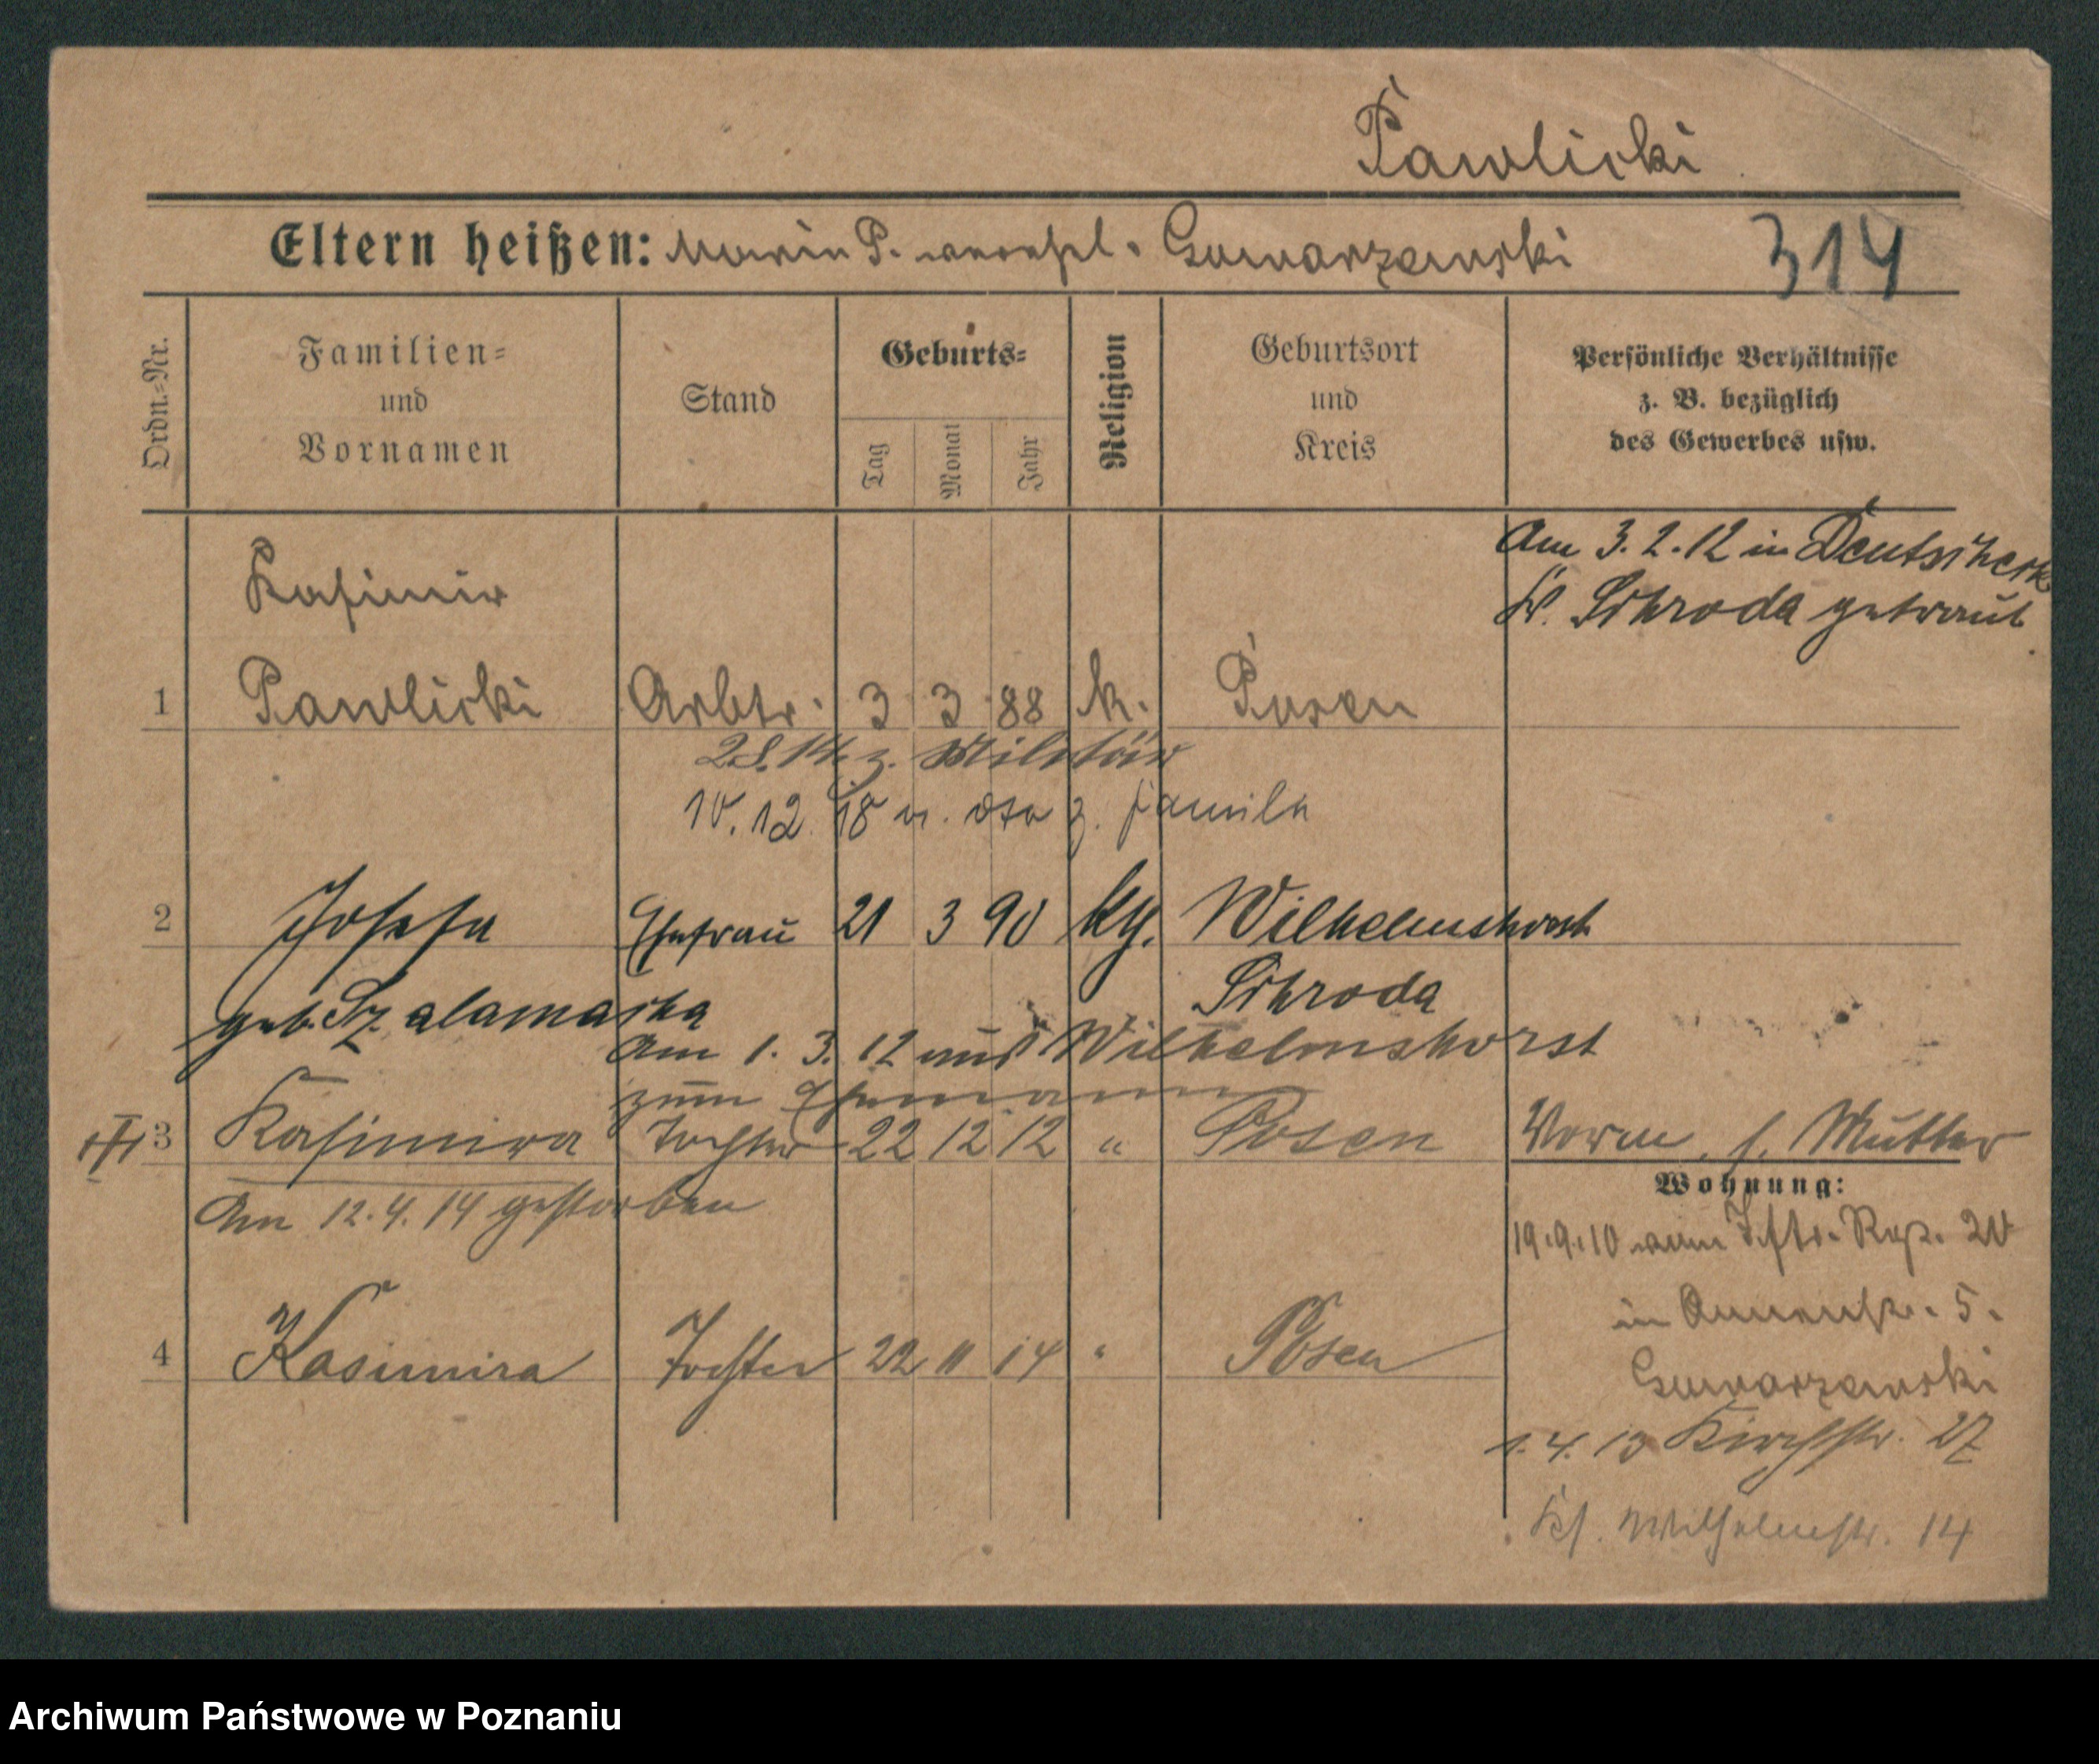 Pawlicki
Eltern heißen: Maria P. verehl. Gowarzewski 314
Ordn.-Nr.
Familien-
und
Vornamen
Stand
Geburts-
Tag
Monat
Jahr
Religion
Geburtsort
und
Kreis
Persönliche Verhältnisse
z. B. bezüglich
des Gewerbes usw.
Am 3.2.12 in Deutscheck
Kr. Schroda getraut
Kasimir
1 Pawlicki Arbtr. 3 3 88 k. Posen
z. Militär
10.12.18 v. dto z. Familie
2 Josefa Ehefrau 21 3 90 kth. Wilhelmshorst
Schroda
geb. Szalamacha
Am 1. 3. 12 aus Wilhelmshorst
zum Ehemann
3 Kasimira Tochter 22 12 12 " Posen Vorm. s. Mutter
Am 12.4.14 gestorben
Wohnung:
19.9.10 vom Iftr. Reg. 20
in Annenstr. 5.
Gowarzewski
4 Kasimira Tochter 22 11 14 " Posen
1.4.13 Kirchstr. 27
Wilhelmstr. 14
Archiwum Państwowe w Poznaniu